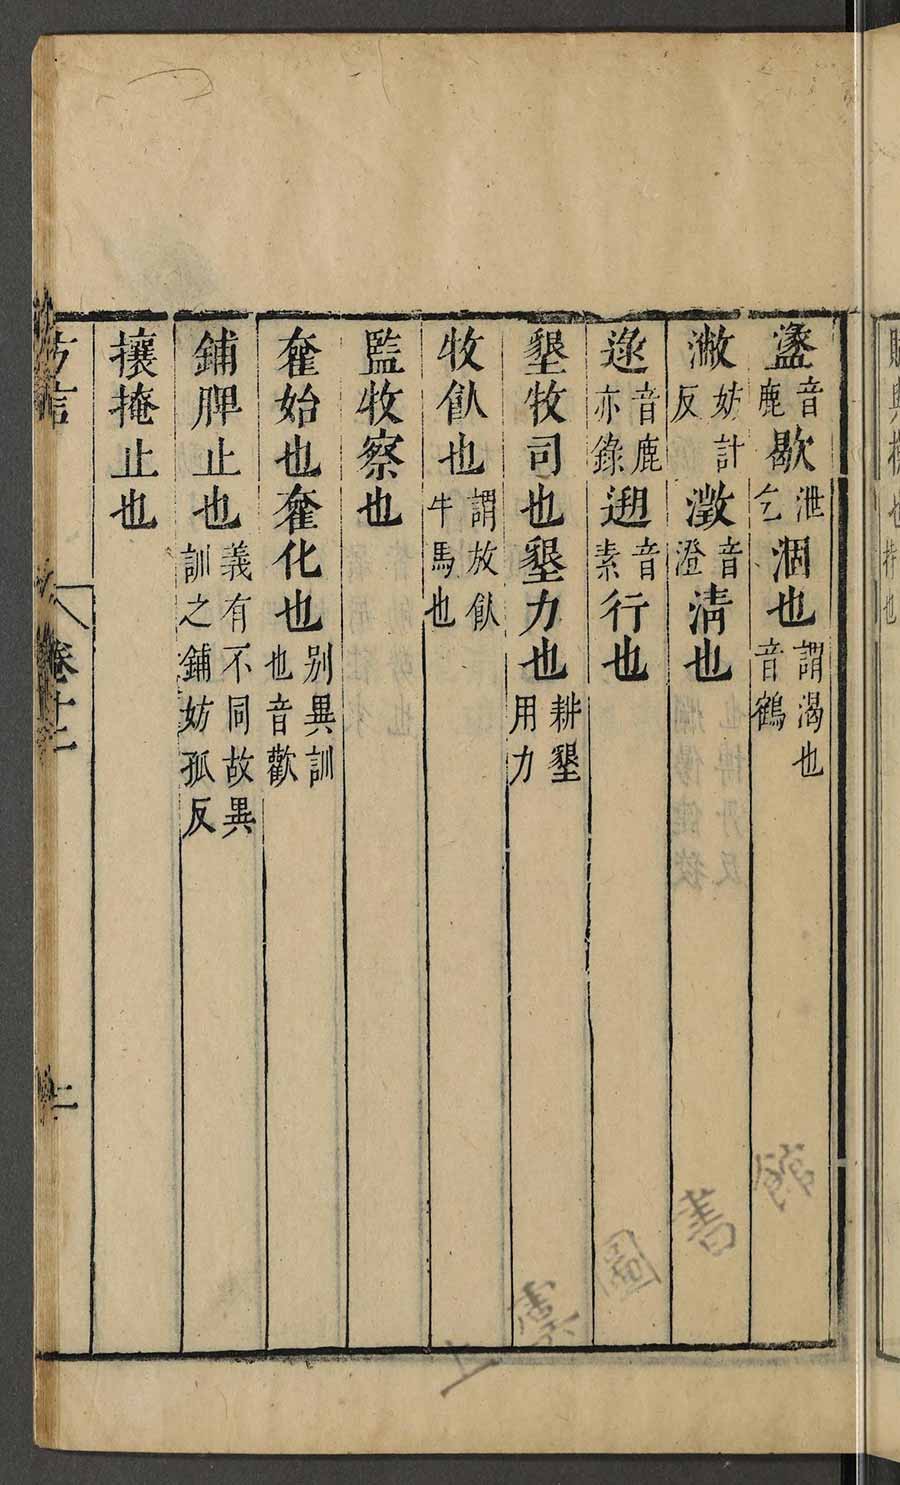 盝音鹿歇泄乞涸也謂渴也音鶴
潎妨計反澂音澄清也
逯音鹿亦錄遡音素行也
墾牧司也墾力也耕墾用力
牧飤也謂放飤牛馬也
監牧察也
奞始也奞化也別異訓也音歡
鋪脾止也義有不同故異訓之鋪妨孤反
攘掩止也
方言
卷十二
二
上虞圖書館